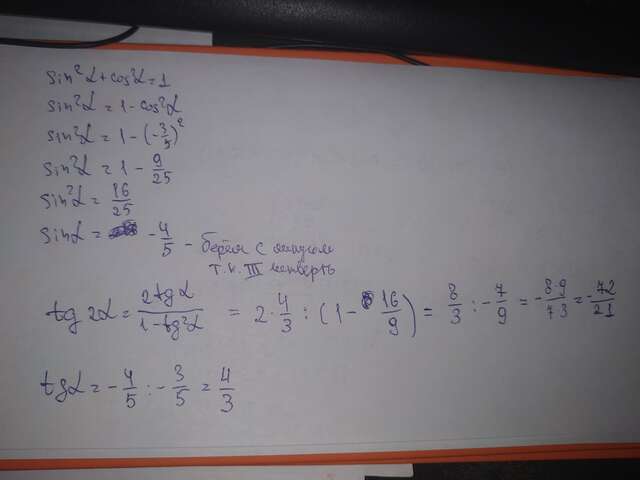 sin²α+cos²α=1
sin²α=1-cos²α
sin²α=1-(-3/5)²
sin²α=1-9/25
sin²α=16/25
sinα= -4/5 - берём с минусом
т.к. III четверть
tg2α=2tgα/1-tg²α = 2·4/3:(1-16/9)=8/3:-7/9=-8·9/73=-72/21
tgα=-4/5:-3/5=4/3